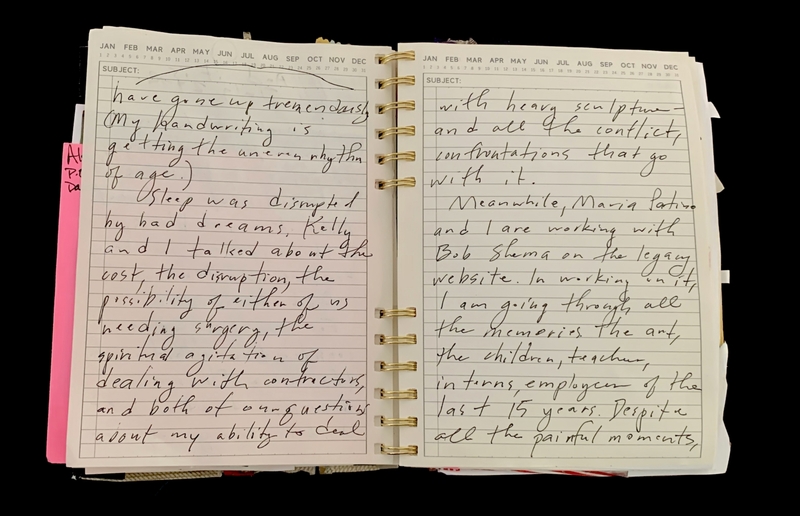 JAN FEB MAR APR MAY JUN JUL AUG SEP OCT NOV DEC
SUBJECT:
have gone up tremendously
(My handwriting is
getting the uneven rhythm
of age.)
Sleep was disrupted
by bad dreams. Kelly
and I talked about the
cost, the disruption, the
possibility of either of us
needing surgery, the
spiritual agitation of
dealing with contractors,
and both of our questions
about my ability to deal
JAN FEB MAR APR MAY JUN JUL AUG SEP OCT NOV DEC
SUBJECT:
with heavy sculpture—
and all the conflict,
confrontations that go
with it.
Meanwhile, Maria
and I are working with
Bob on the legacy
website. In working on it,
I am going through all
the memories the art,
the children, teachers,
interns, employees of the
last 15 years. Despite
all the painful moments,